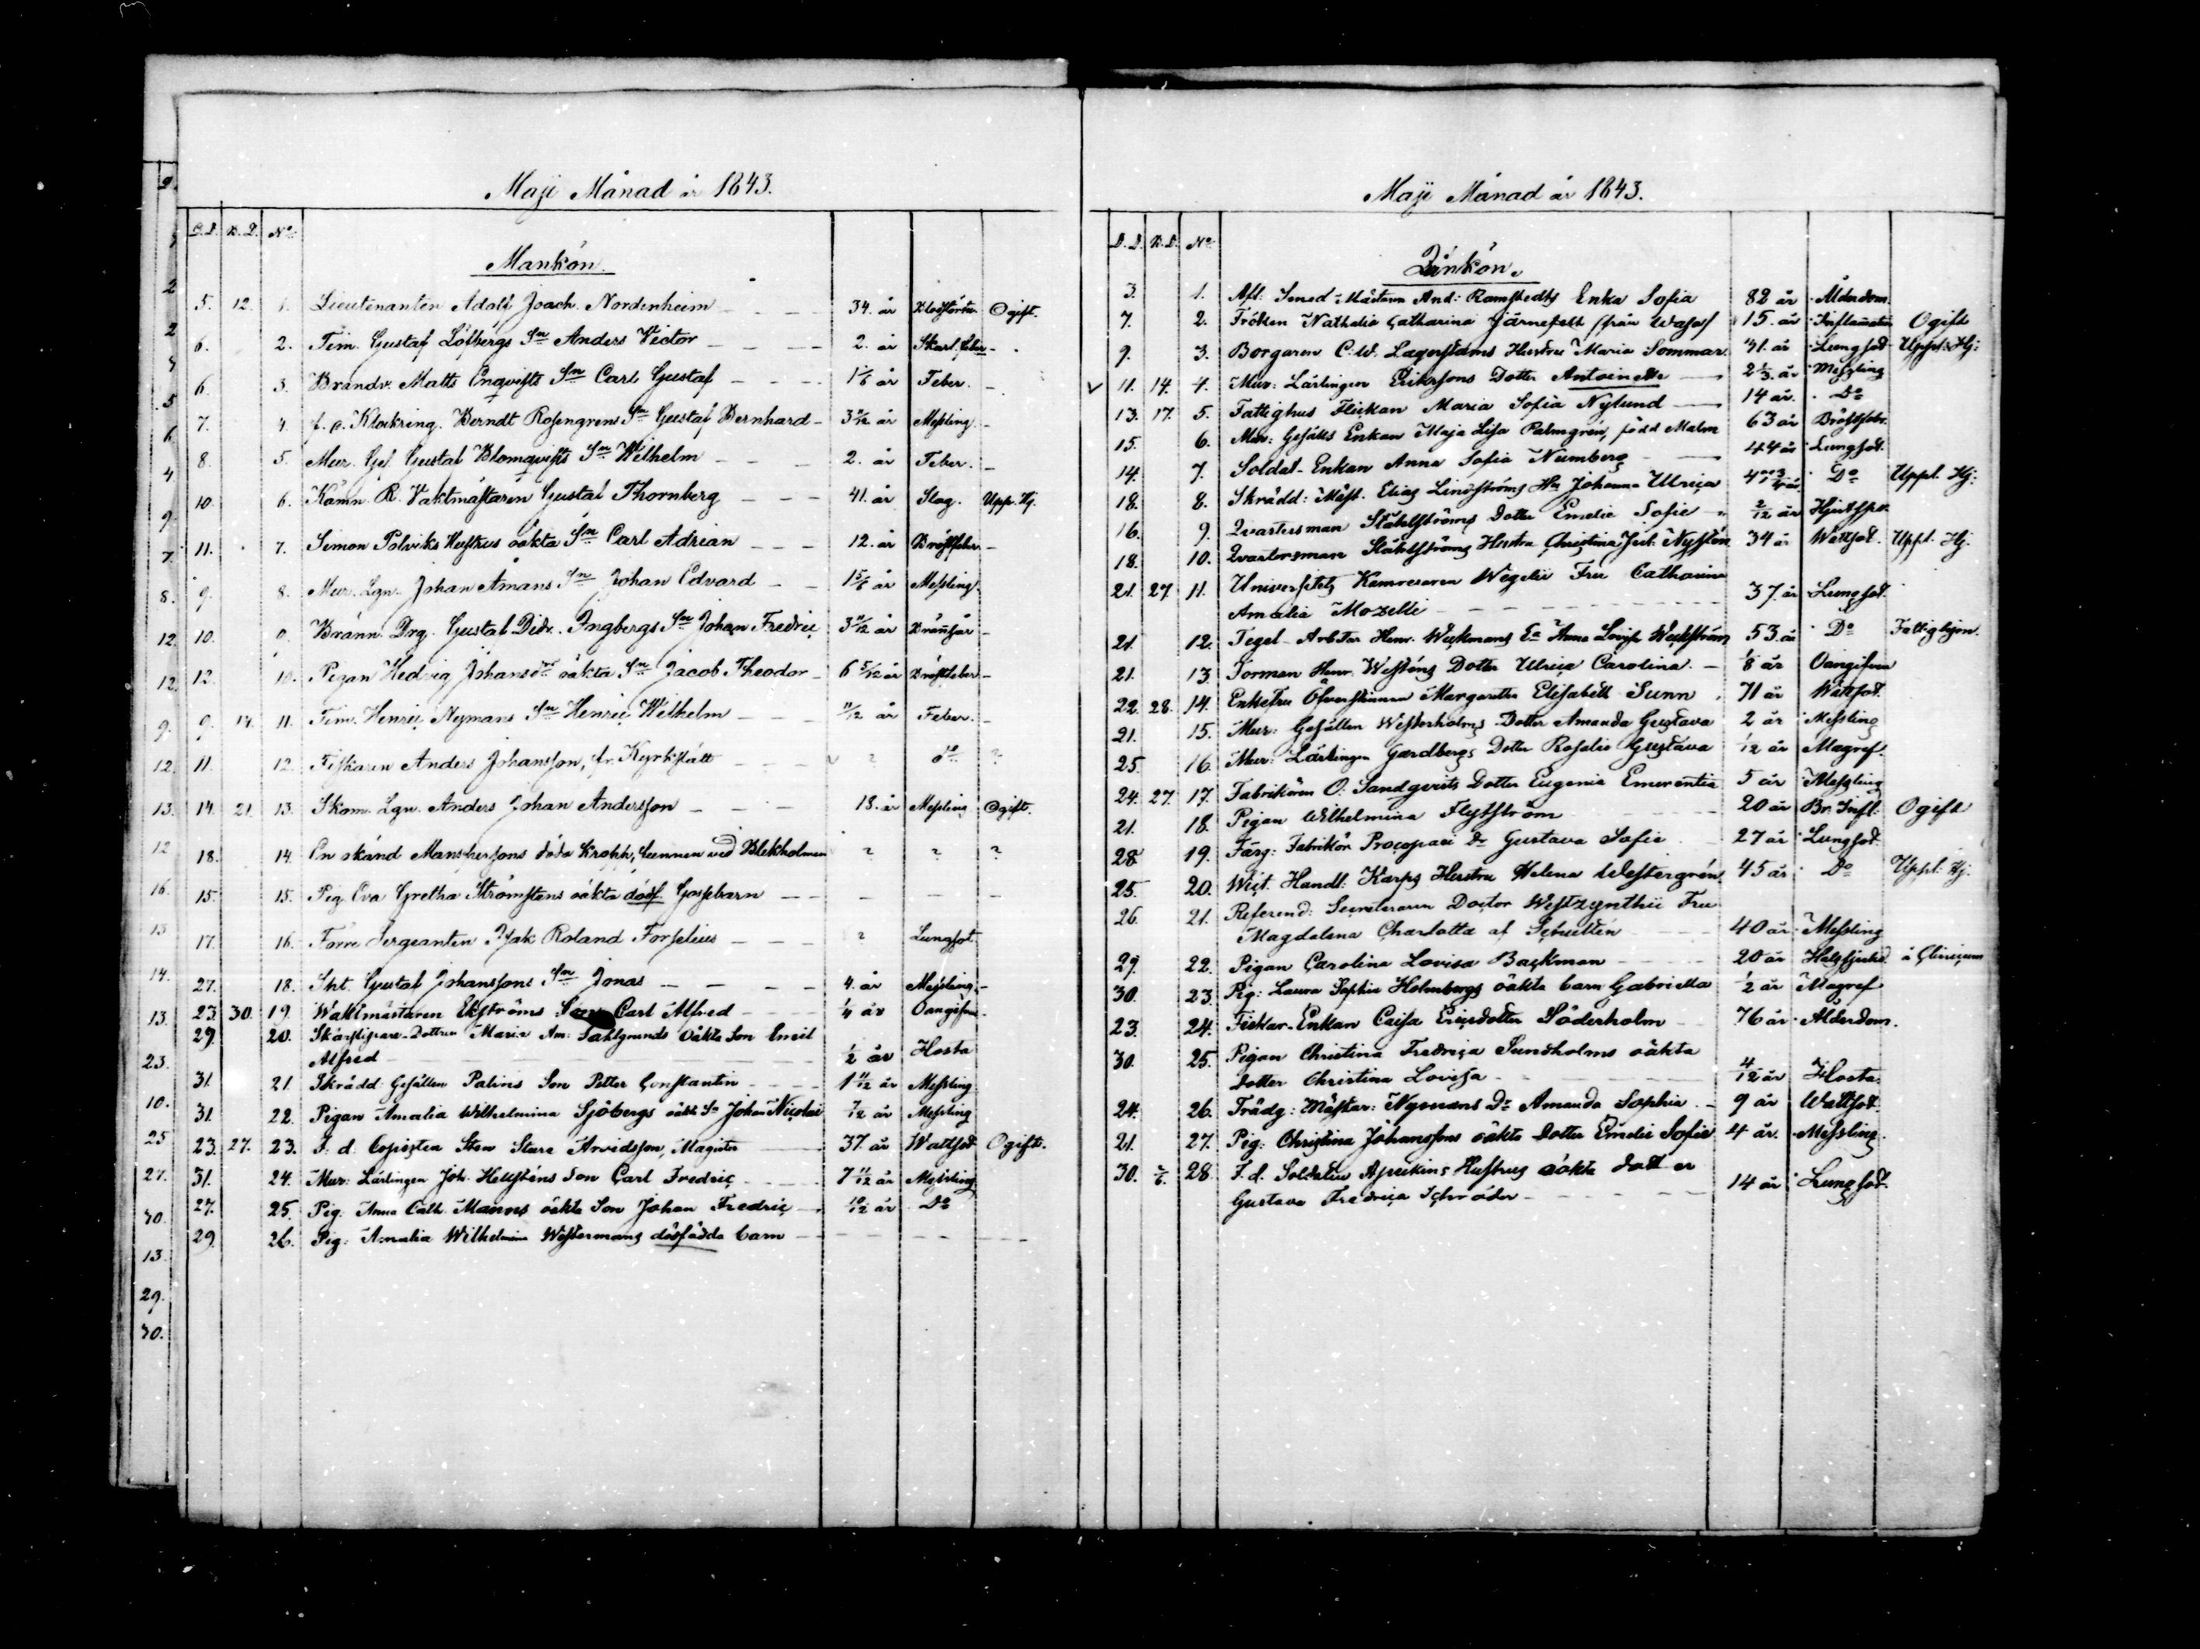 Maji Månad år 1843.
D.D. B.D. No
Mankön.
5. 12. 1. Lieutenanten Adolf Joach. Nordenheim 34. år Ogift.
6. 2. Tim. Gustaf Löfbergs Sn Anders Victor 2. år Skarl. feber
6. 3. Brandv. Matts Enqvists Sn Carl Gustaf 1 1/6 år Feber.
7. 4. f. d. Klockring. Berndt Rosengrens Sn Gustaf Bernhard 3 9/12 år Messling
8. 5. Mur. Ges. Gustaf Blomqvists Sn Wilhelm 2. år Feber.
10. 6. Kämn. R. Vaktmästaren Gustaf Thornberg 41. år Slag. Upp. Hj.
11. 7. Simon Polviks Hustrus oäkta Sn Carl Adrian 12. år Bröstfeber
9. 8. Mur. Lgn. Johan Åmans Sn Johan Edvard 1 5/6 år Messling.
10. 9. Bränn. Drg. Gustaf Didr. Ingbergs Sn Johan Fredric 3 9/12 år
12. 10. Pigan Hedvig Johansdr oäkta Sn Jacob Theodor 6 5/12 år Bröstfeber
9. 14. 11. Tim. Henric Nymans Sn Henric Wilhelm 11/12 år Feber.
11. 12. Fiskaren Anders Johansson, fr. Kyrkslätt ? do ?
14. 21. 13. Skom. Lgn. Anders Johan Andersson 18. år Messling Ogift.
18. 14. En okänd Manspersons döda kropp, funnen vid Blekholmen ? ? ?
15. 15. Pig. Eva Gretha Strömstens oäkta dödf. Gossebarn
17. 16. Förre Sergeanten Isak Roland Forselius ? Lungsot
27. 18. Sht. Gustaf Johanssons Sn Jonas 4. år Messling
23 30. 19. Waktmästaren Ekströms Son Carl Alfred 1/4 år Oangifven
29. 20. Skärslipare-Dottren Maria Am. Sahlgrunds Oäkta Son Emil
Alfred 1/2 år Hosta
31. 21. Skrädd: Gesällen Palins Son Petter Constantin 1 11/12 år Messling
31. 22. Pigan Amalia Wilhelmina Sjöbergs oäkt Sn Johan Nicolai 7/12 år Messling
23. 27. 23. F. d. Copisten Sten Sture Arvidsson, Magister 37. år Wattsot Ogift.
31. 24. Mur: Lärlingen Joh. Hellsténs Son Carl Fredric 7 11/12 år Messling
27. 25. Pig. Anna Cath. Manns oäkta Son Johan Fredric 10/12 år Do
29 26. Pig: Amalia Wilhelmina Westermans dödfödda barn
Maji Månad år 1843.
D.D. B.D. No
Qvinkön.
3. 1. Afl: Smed-Mästaren And: Ramstedts Enka Sofia 82 år Ålderdom.
7. 2. Fröken Nathalia Catharina Järnefelt (från Wasa) 15. år Inflamation Ogift
9. 3. Borgaren C. W. Lagerstams Hustru Maria Sommar 41. år Lungsot Uppl: Hj:
11. 14. 4. Mur: Lärlingen Erikssons Dotter Antoinette 2 1/3. år Messling
13. 17. 5. Fattighus Flickan Maria Sofia Nylund 14 år. Do
15. 6. Mur: Gesälls Enkan Maja Lisa Palmgrén, född Malm 63 år Bröstfebr.
14. 7. Soldat-Enkan Anna Sofia Numberg 44 år Lungsot.
18. 8. Skrädd: Mäst. Elias Lindströms Hu Johanna Ulrica Do Uppl. Hj:
16. 9. Qvartersman Ståhlströms Dotter Emelie Sofie 2/12 år
18. 10. Qvartersman Ståhlströms Hustru Christina Jak: Nystén 34 år Wattsot. Uppl. Hj.
21. 27. 11. Universitets Kamreraren Wegelii Fru Catharina
Amalia Mozelli 37. år Lungsot.
21. 12. Tegel-Arb. Henr. Weckmans Ea Anna Lovisa Weckström 53. år Do Fattighjon.
21. 13. Forman Henr. Westéns Dotter Ulrica Carolina 1/8 år Oangifven
22. 28. 14. Enkefru Öfverstinnan Margaretha Elisabeth Sunn 71 år Wattsot.
21. 15. Mur: Gesällen Westerholms Dotter Amanda Gustava 2 år Messling
25. 16. Mur: Lärlingen Gardbergs Dotter Rosalie Gustava 1/12 år Magref.
24. 27. 17. Fabrikören O. Sandqvists Dotter Eugenia Emerentia 5 år Messling
21. 18. Pigan Wilhelmina Flytström 20 år Br. Infl: Ogift
28. 19. Färg: Fabrikör Procopaei Dr Gustava Sofie 27 år Lungsot
25. 20. Wict. Handl: Karps Hustru Helena Westergrén 45 år Do Uppl: Hj:
26. 21. Referend: Secreteraren Doctor Westzynthii Fru
Magdalena Charlotta af Schultén 40 år Messling
29. 22. Pigan Carolina Lovisa Backman 20 år å Clinicum
30. 23. Pig: Laura Sophia Holmbergs oäkta barn Gabriella 1/2 år Magref
23. 24. Fiskar-Enkan Caisa Ericsdotter Söderholm 76 år Ålderdom.
30. 25. Pigan Christina Fredrica Sundholms oäkta
Dotter Christina Lovisa 4/12 år Hosta.
24. 26. Trädg: Mästar: Nymans Dr Amanda Sophia 9 år Wattsot.
21. 27. Pig: Christina Johanssons oäkta Dotter Emelie Sofie 4 år. Messling.
30. 2/6. 28 F. d. Soldaten Hustrus oäkta dotter
Gustava Fredrica Schröder 14 år Lungsot.